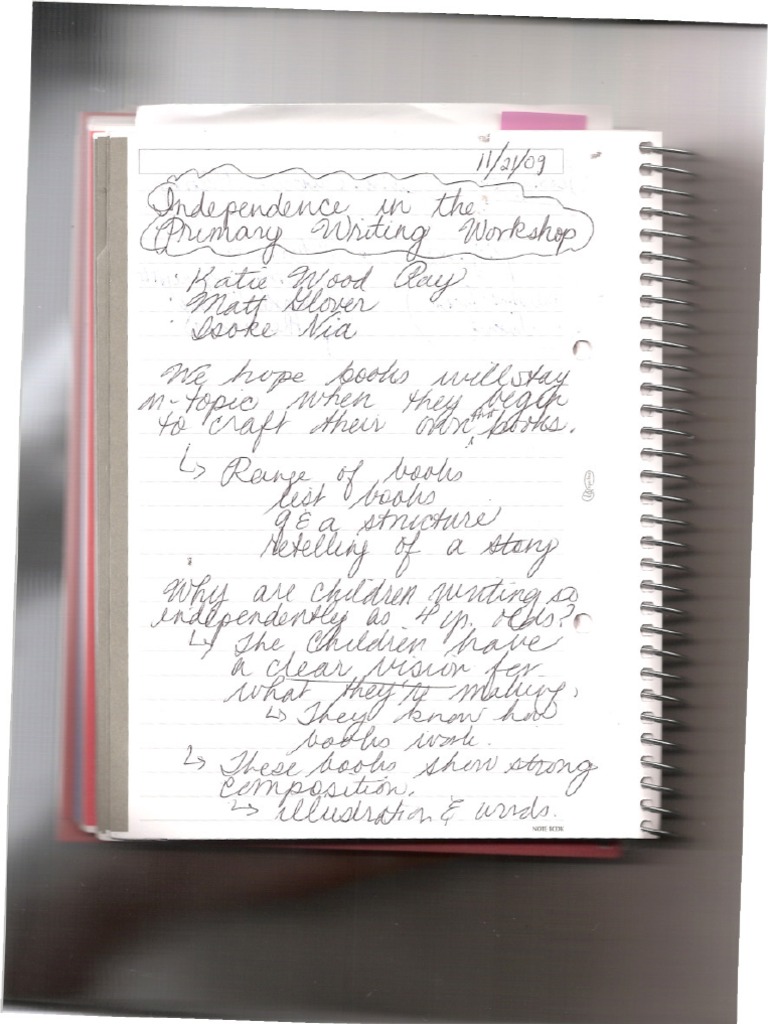 11/21/09
Independence in the
Primary Writing Workshop
· Katie Wood Ray
· Matt Glover
· Isoke Nia
We hope books will stay
on-topic when they begin
to craft their own books.
↳ Range of books
list books
q & a structure
retelling of a story
Why are children writing so
independently as 4 yr. olds?
↳ The children have
a clear vision for
what they're making.
↳ They know how
books work.
↳ These books show strong
composition.
↳ illustration & words.
NOTE BOOK